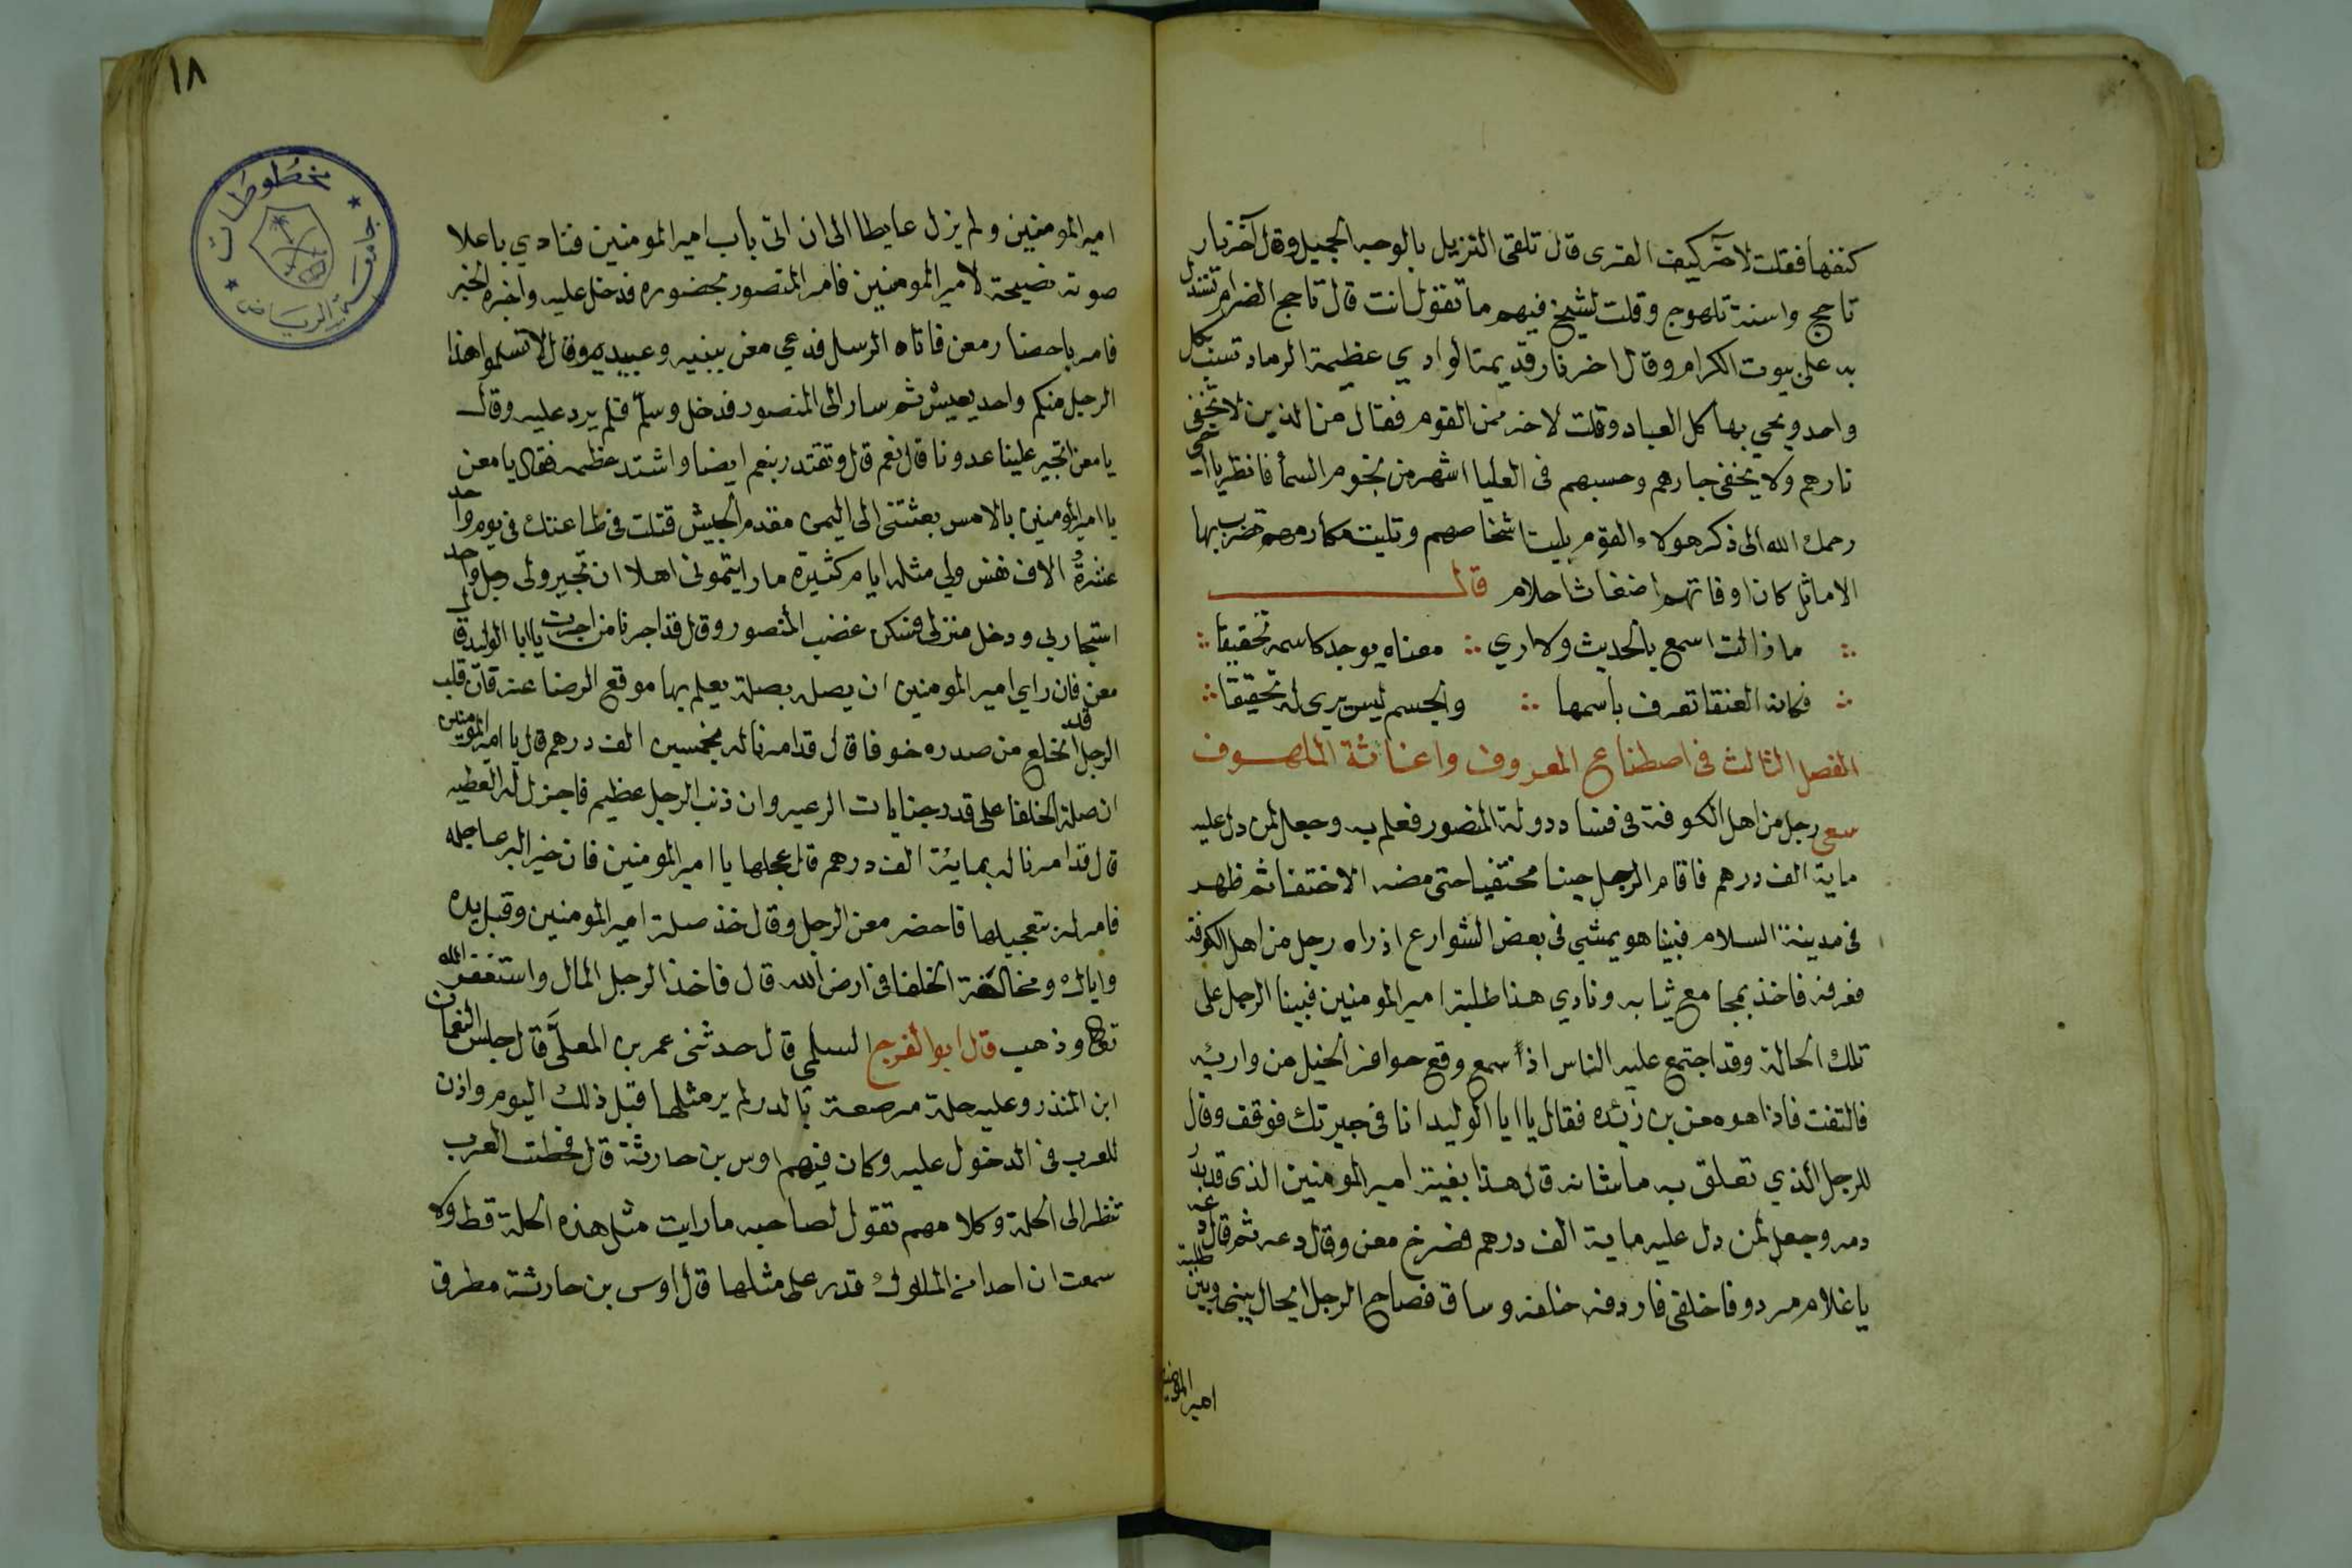 كنفها فقلت لاخر كيف القرى قال تلقى النزيل بالوجه الجميل وقال آخر نار
تاجج واسنة تلهوج وقلت لشيخ فيهم ما تقول انت قال تاجج الضرام تستدل
به على بيوت الكرام وقال اخر نار قديمة الوادي عظيمة الرماد تسب كل
واحد ويحي بها كل العباد وقلت لاخر ممن القوم فقال من الذين لا تخفى
نارهم ولا يخفى جارهم وحسبهم في العليا اشهر من نجوم السمأ فانظر يا اخي
رحمك الله الى ذكر هولاء القوم بليت اشخاصهم وتليت مكارمهم تضرب بها
الامائل كان اوقاتهم اضغاث احلام قال
ما زالت اسمع بالحديث ولا ارى معناه يوجد كاسمه تحقيقا
فكانه العنقا تعرف باسمها والجسم ليس يرى له تحقيقا
الفصل الثالث في اصطناع المعروف واغاثة الملهوف
سعى رجل من اهل الكوفة في فساد دولة المنصور فعلم به وجعل لمن دل عليه
ماية الف درهم فاقام الرجل حينا مختفيا حتى مضه الاختفا ثم ظهر
في مدينة السلام فبينا هو يمشي في بعض الشوارع اذ راه رجل من اهل الكوفة
فعرفه فاخذ بمجامع ثيابه ونادي هذا طلبة امير المومنين فبينا الرجل على
تلك الحالة وقد اجتمع عليه الناس اذا سمع وقع حوافر الخيل من وارئه
فالتفت فاذا هو معن بن زئده فقال يا ابا الوليد انا في جيرتك فوقف وقال
للرجل الذي تعلق به ما شانه قال هذا بغية امير المومنين الذى قد
دمه وجعل لمن دل عليه ماية الف درهم فصرخ معن وقال دعه ثم قال
يا غلام مردوفا خلفي فاردفه خلفه وساق فصاح الرجل ايحال بيني وبين طلبة
امير المومنين
١٨
امير المومنين ولم يزل عايطا الى ان اتى باب امير المومنين فنادي باعلا
صوته نصيحة لامير المومنين فامر المنصور بحضوره فدخل عليه واخبره الخبر
فامر باحضار معن فاتاه الرسل فدعي معن ببنيه وعبيده وقال لا تسلموا هذا
الرجل منكم واحد يعيش ثم سار الى المنصور فدخل وسلم فلم يرد عليه وقال
يا معن اتجير علينا عدونا قال نعم قال وتقتدر بنعم ايضا واشتد عظمه فقال يا معن
يا امير المومنين بالامس بعثتني الى اليمن مقدم الجيش قتلت في طاعتك في يوم واحد
عشرة الاف نفس ولي مثله ايام كثيرة ما رايتموني اهلا ان تجيروا لى رجل واحد
استجار بي ودخل منزلي فسكن غضب المنصور وقال قد اجرنا من اجرت يا ابا الوليد قال
معن فان راي امير المومنين ان يصله بصلة يعلم بها موقع الرضا عنه فان قلب
الرجل قد انخلع من صدره خوفا قال قد امرنا له بخمسين الف درهم قال يا امير المومنين
ان صلة الخلفا على قدر جنايات الرعيه وان ذنب الرجل عظيم فاجزل له العطيه
قال قد امرنا له بماية الف درهم قال عجلها يا امير المومنين فان خير البر عاجله
فامر له بتعجيلها فاحضر معن الرجل وقال خذ صلة امير المومنين وقبل يده
واياك ومخالفة الخلفا في ارض الله قال فاخذ الرجل المال واستغفر الله
تعالى وذهب قال ابو الفرج السلمى قال حدثني عمر بن المعلى قال جلس النعمان
ابن المنذر وعليه حلة مرصعة بالدر لم ير مثلها قبل ذلك اليوم واذن
للعرب في الدخول عليه وكان فيهم اوس بن حارثة قال فجعلت العرب
تنظر الى الحلة وكلا مهم تقول لصاحبه ما رايت مثل هذه الحلة قط ولا
سمعت ان احدا من الملوك قدر على مثلها قال اوس بن حارثة مطرق
مخطوطات
جامعة الرياض